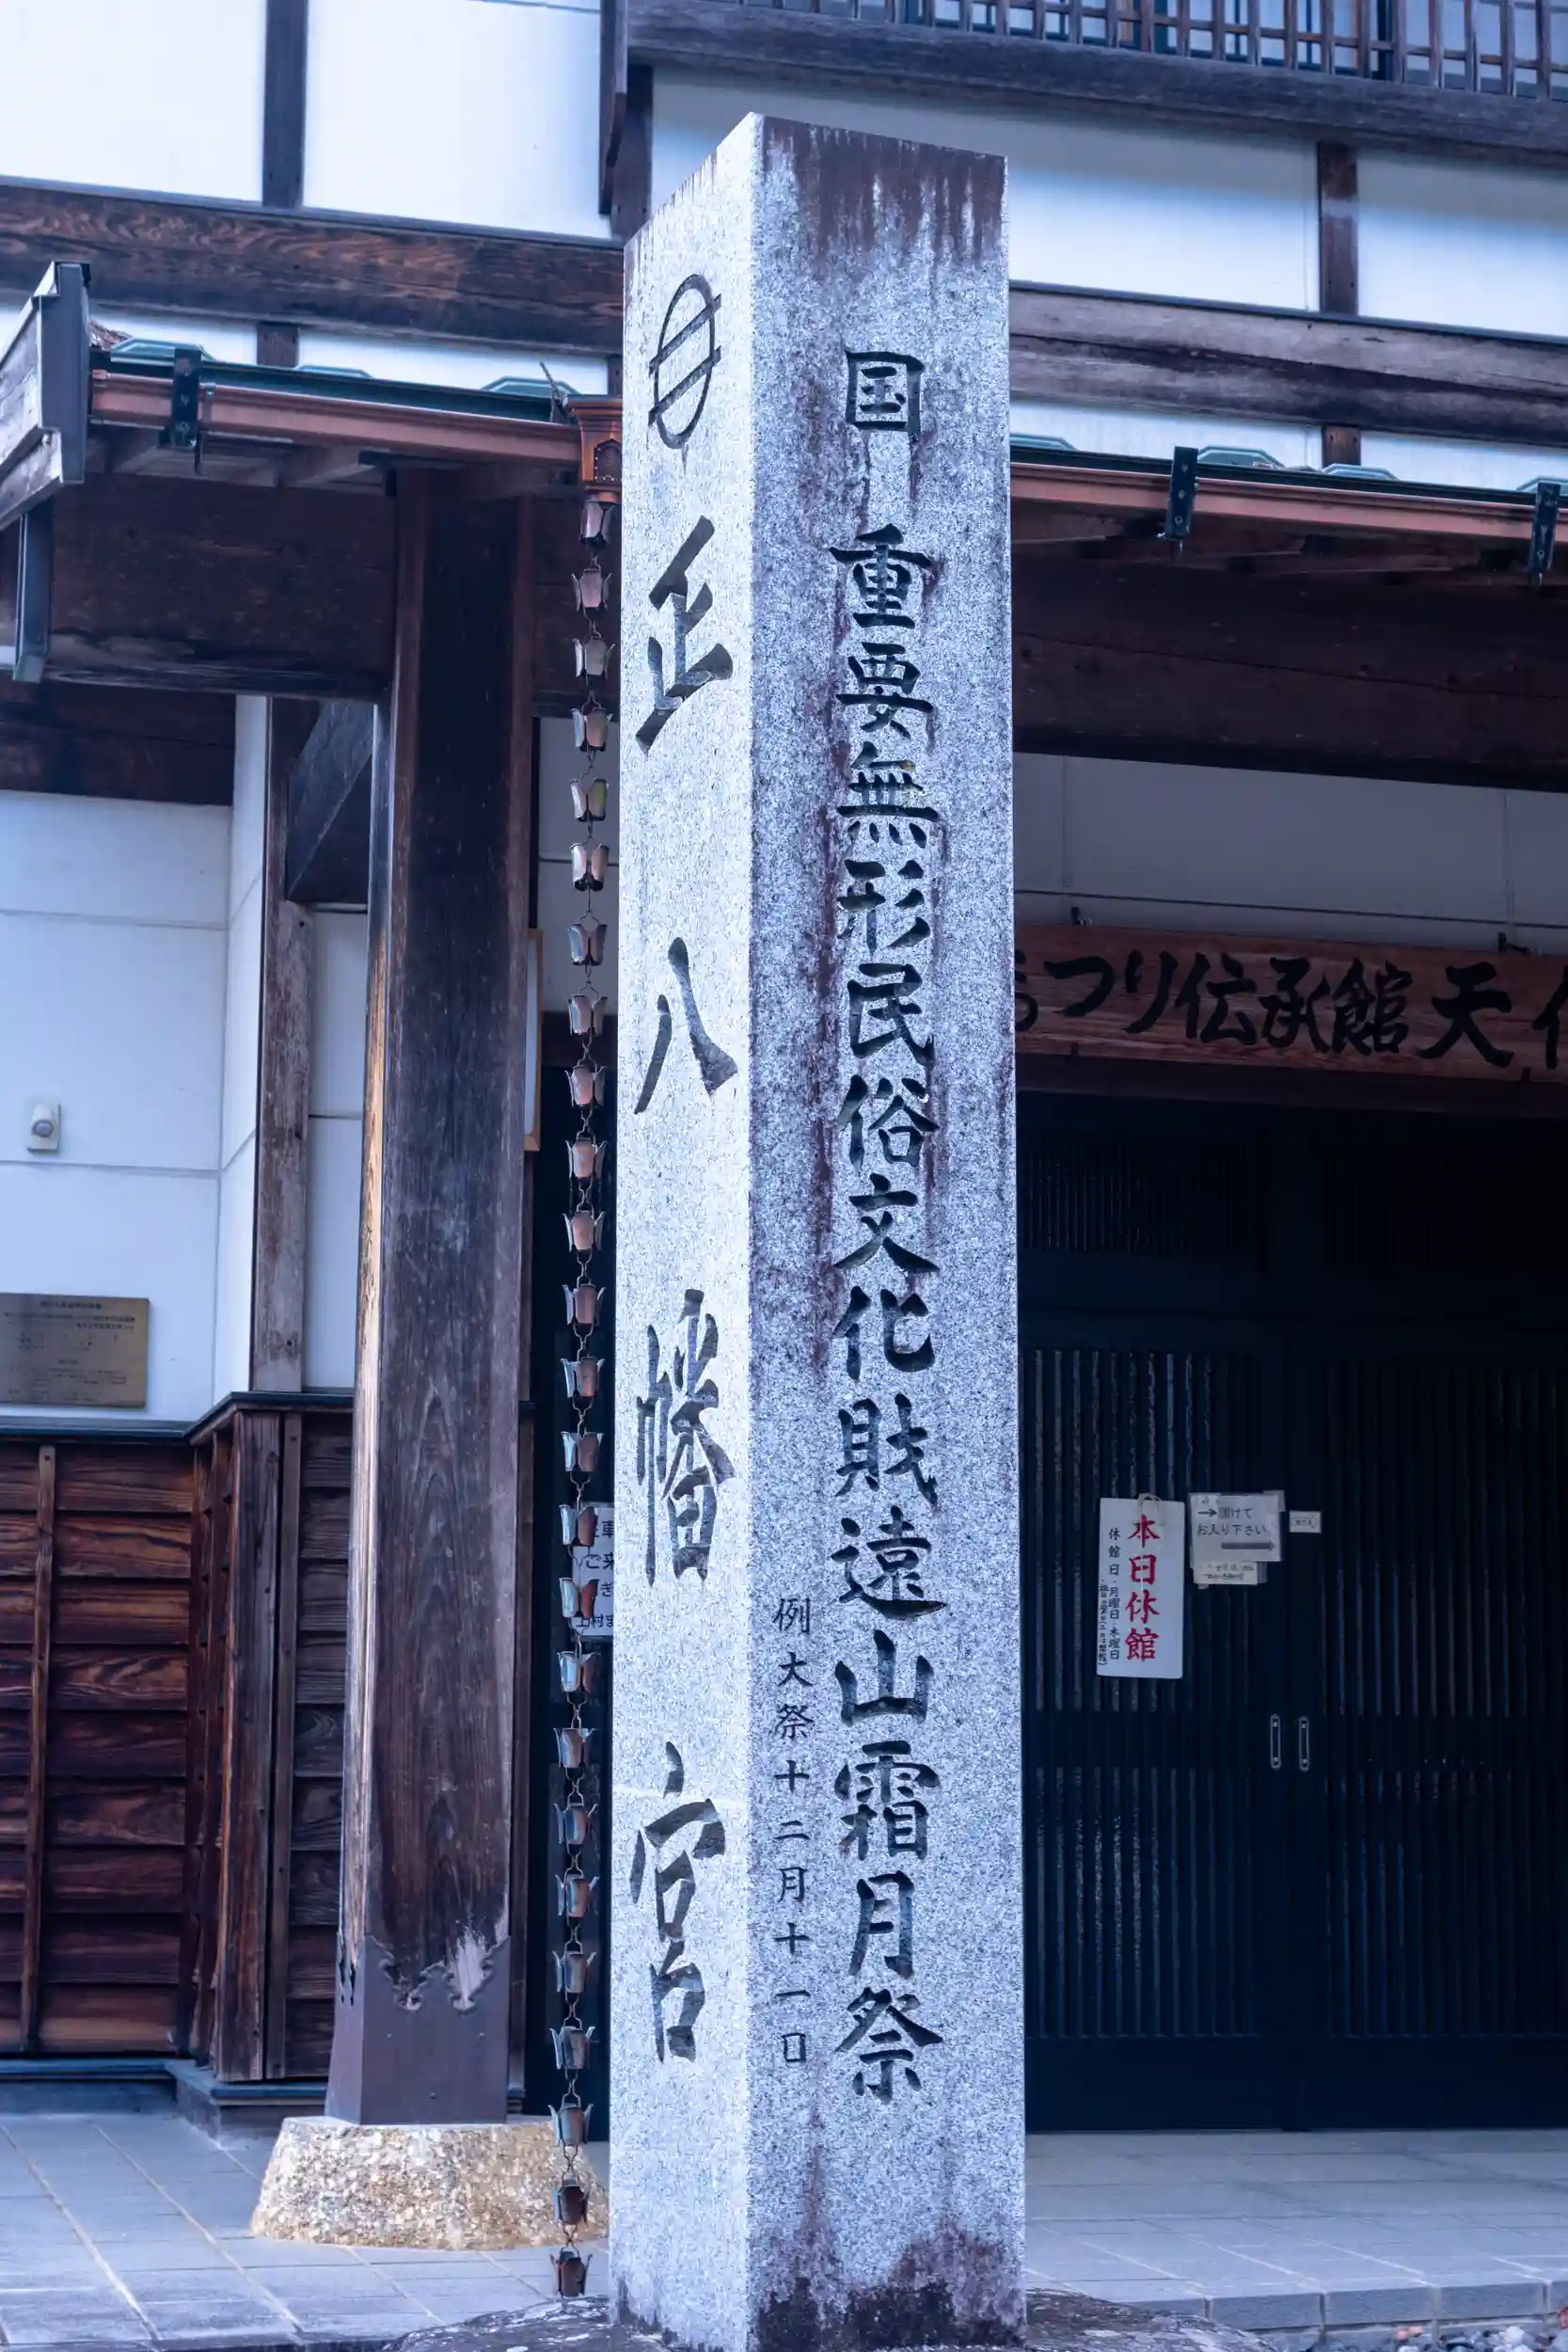 国 重要無形民俗文化財遠山霜月祭
例大祭十二月十一日
正八幡宮
まつり伝承館天
本日休館
休館日・月曜日・木曜日
開けて
お入り下さい